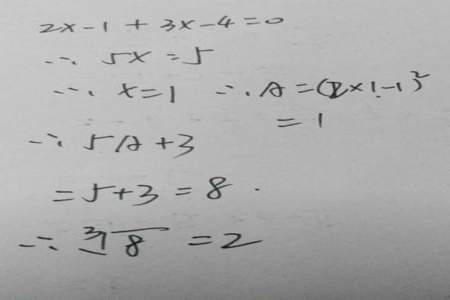 2x-1+3x-4=0
∴ 5x=5
∴ x=1 ∴ A=(2×1-1)²
=1
∴ 5A+3
=5+3=8.
∴ ∛8=2